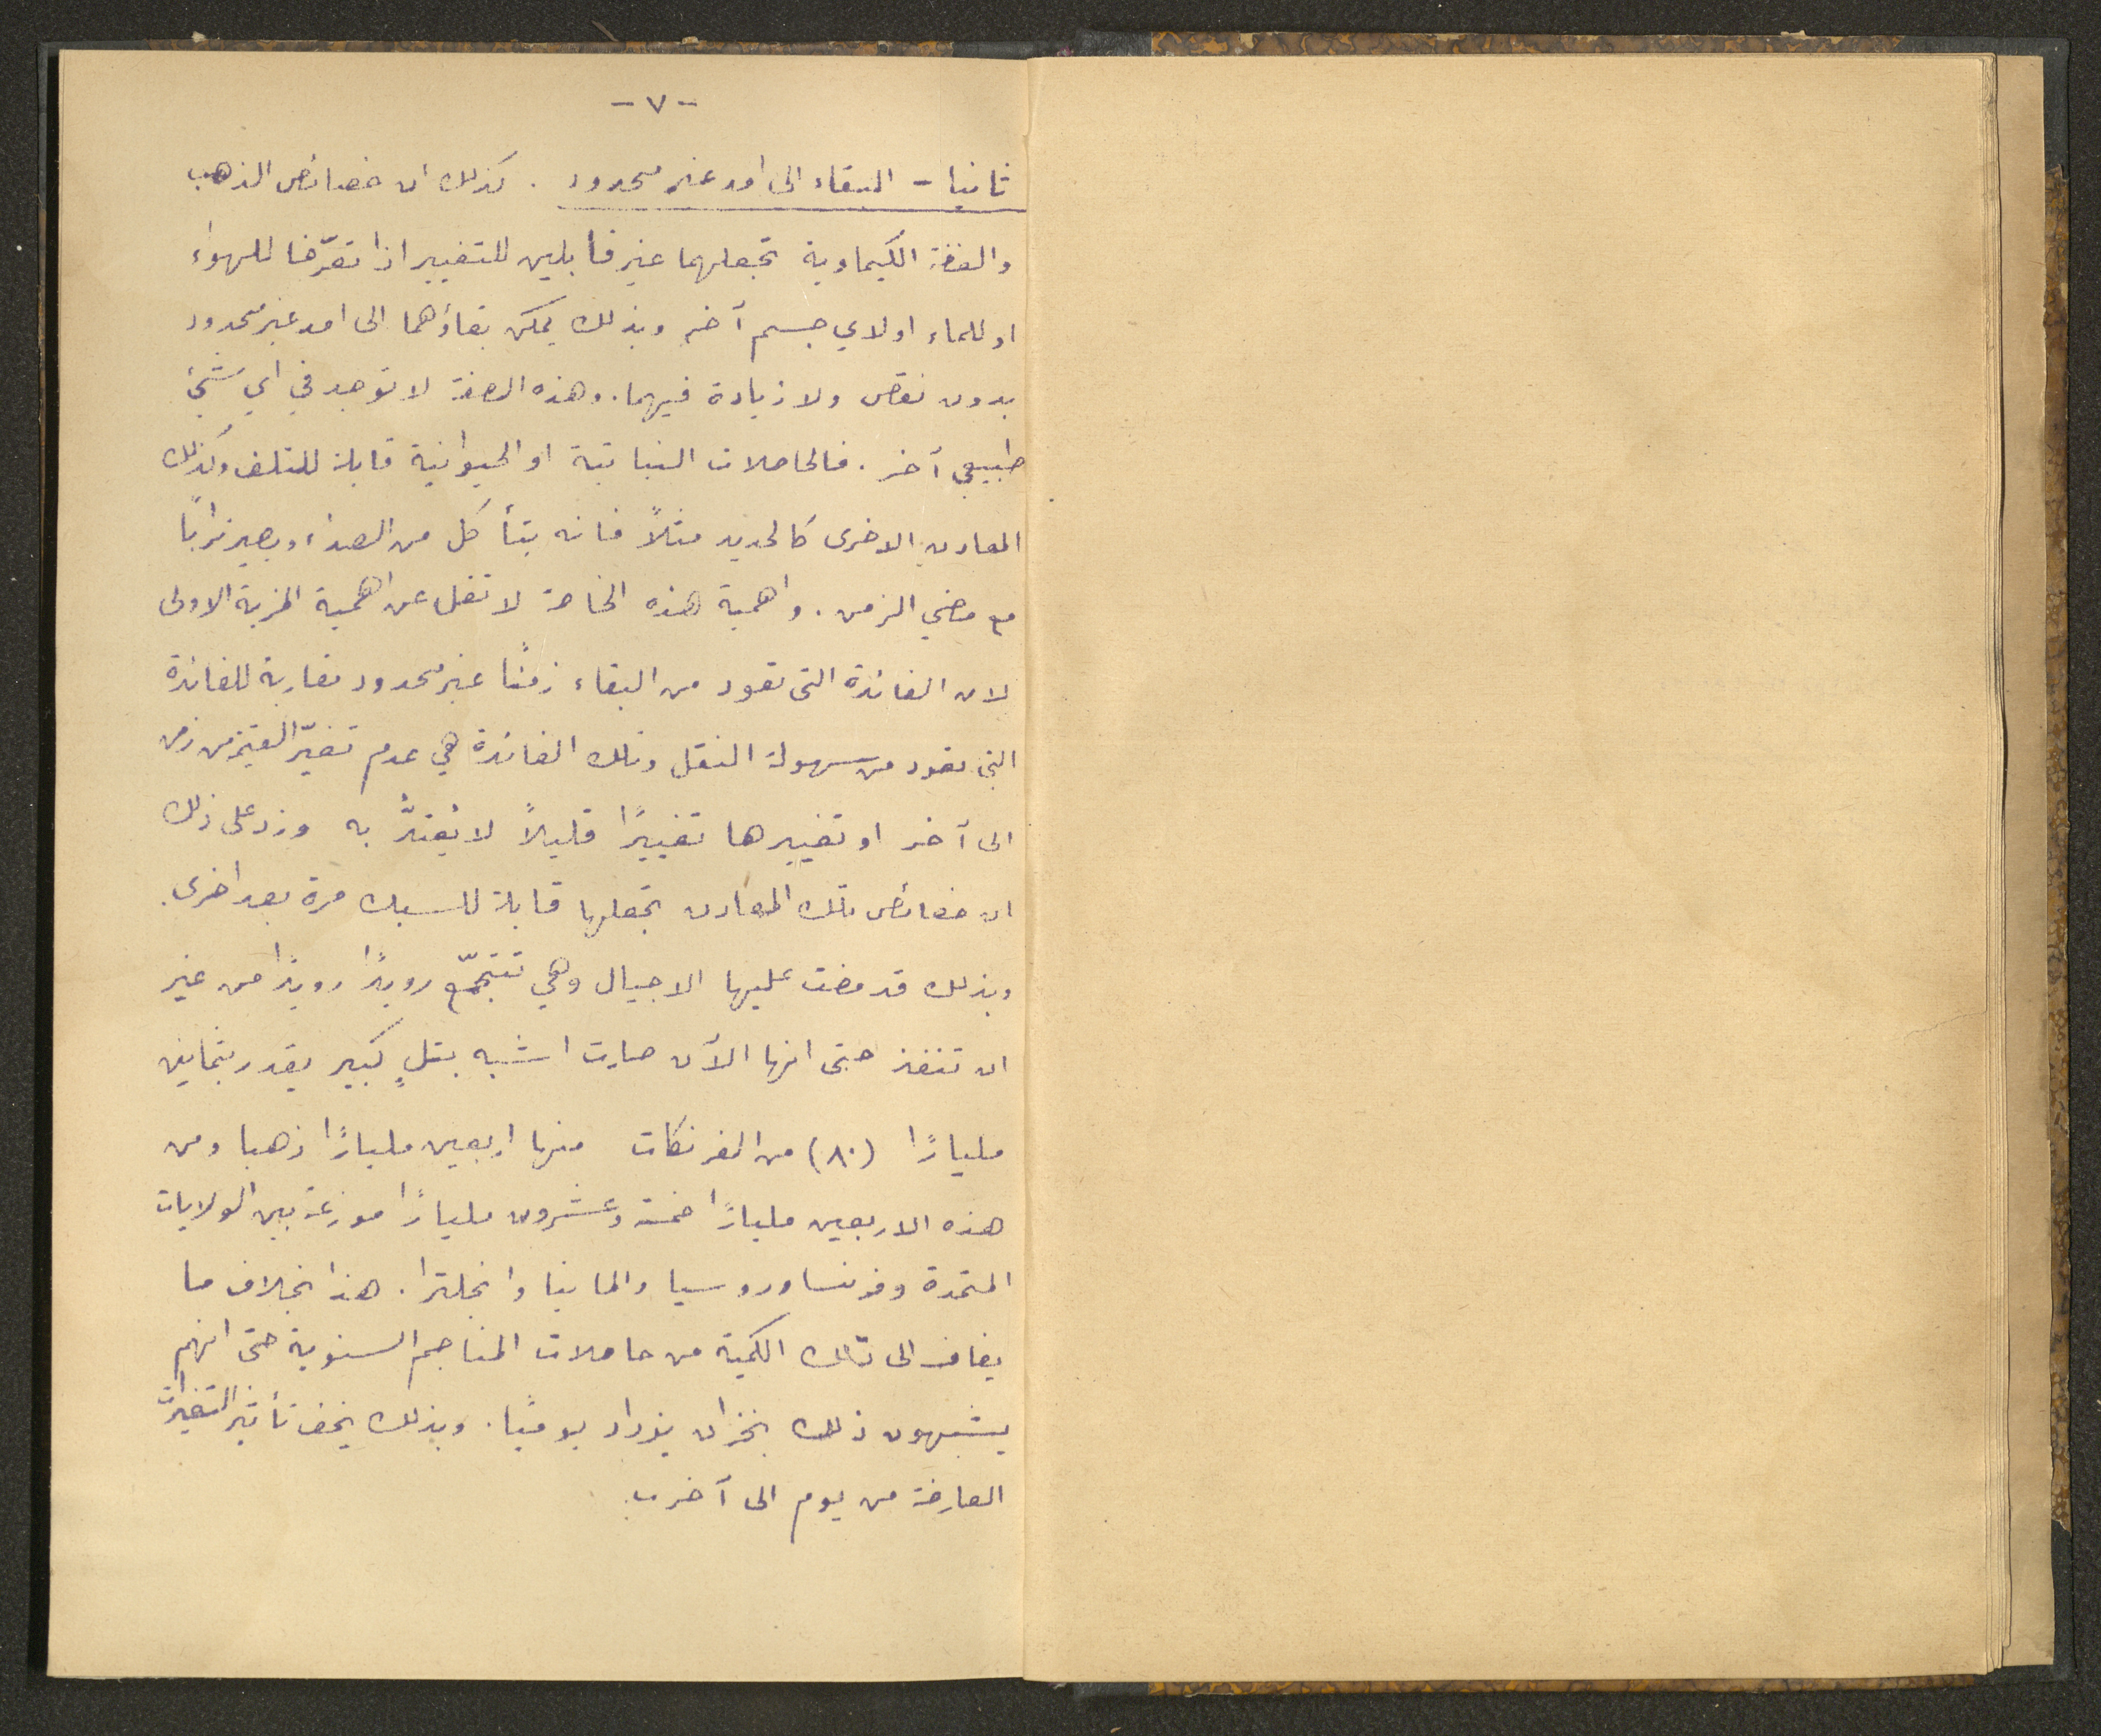 -٧-
ثانيا - البقاء الى امد غير محدود . كذلك ان خصائص الذهب
والفضة الكيماوية تجعلهما غير قابلين للتغيير اذا تعرّضا للهواء
او للماء او لاي جسم آخر وبذلك يمكن بقاؤهما الى امد غير محدود
بدون نقص ولا زيادة فيهما. وهذه الصفة لا توجد في اي شيئ
طبيعي آخر . فالحاصلات النباتية او الحيوانية قابلة للتلف وكذلك
المعادن الاخرى كالحديد مثلاً فانه يتأكل من الصداء ويصير ترابًا
مع مضي الزمن . واهمية هذه الخاصة لا تقل عن اهمية المزية الاولى
لان الفائدة التى تعود من البقاء زمنًا غير محدود مقاربة للفائدة
التى تعود من سهولة النقل وتلك الفائدة هي عدم تغيّر القيمة من زمن
الى آخر او تغييرها تغييرًا قليلاً لا يُعتدُّ به وزد على ذلك
ان خصائص تلك المعادن تجعلها قابلة للسبك مرة بعد اخرى .
وبذلك قد مضت عليها الاجيال وهي تتجمّع رويدًا رويدًا من غير
ان تنفذ حتى انها الآن صارت اشبه بتلٍ كبير يقدر بثمانين
مليارًا (٨٠) من الفرنكات منها اربعين مليارًا ذهبا ومن
هذه الاربعين مليارًا خمسة وعشرون مليارًا موزعة بين الولايات
المتحدة وفرنسا وروسيا والمانيا وانجلترا . هذا بخلاف ما
يضاف الى تلك الكمية من حاصلات المناجم السنوية حتى انهم
يشبهون ذلك بخزان يزداد يوميًا . وبذلك يخف تأثير التغيرات
العارضة من يوم الى آخر .